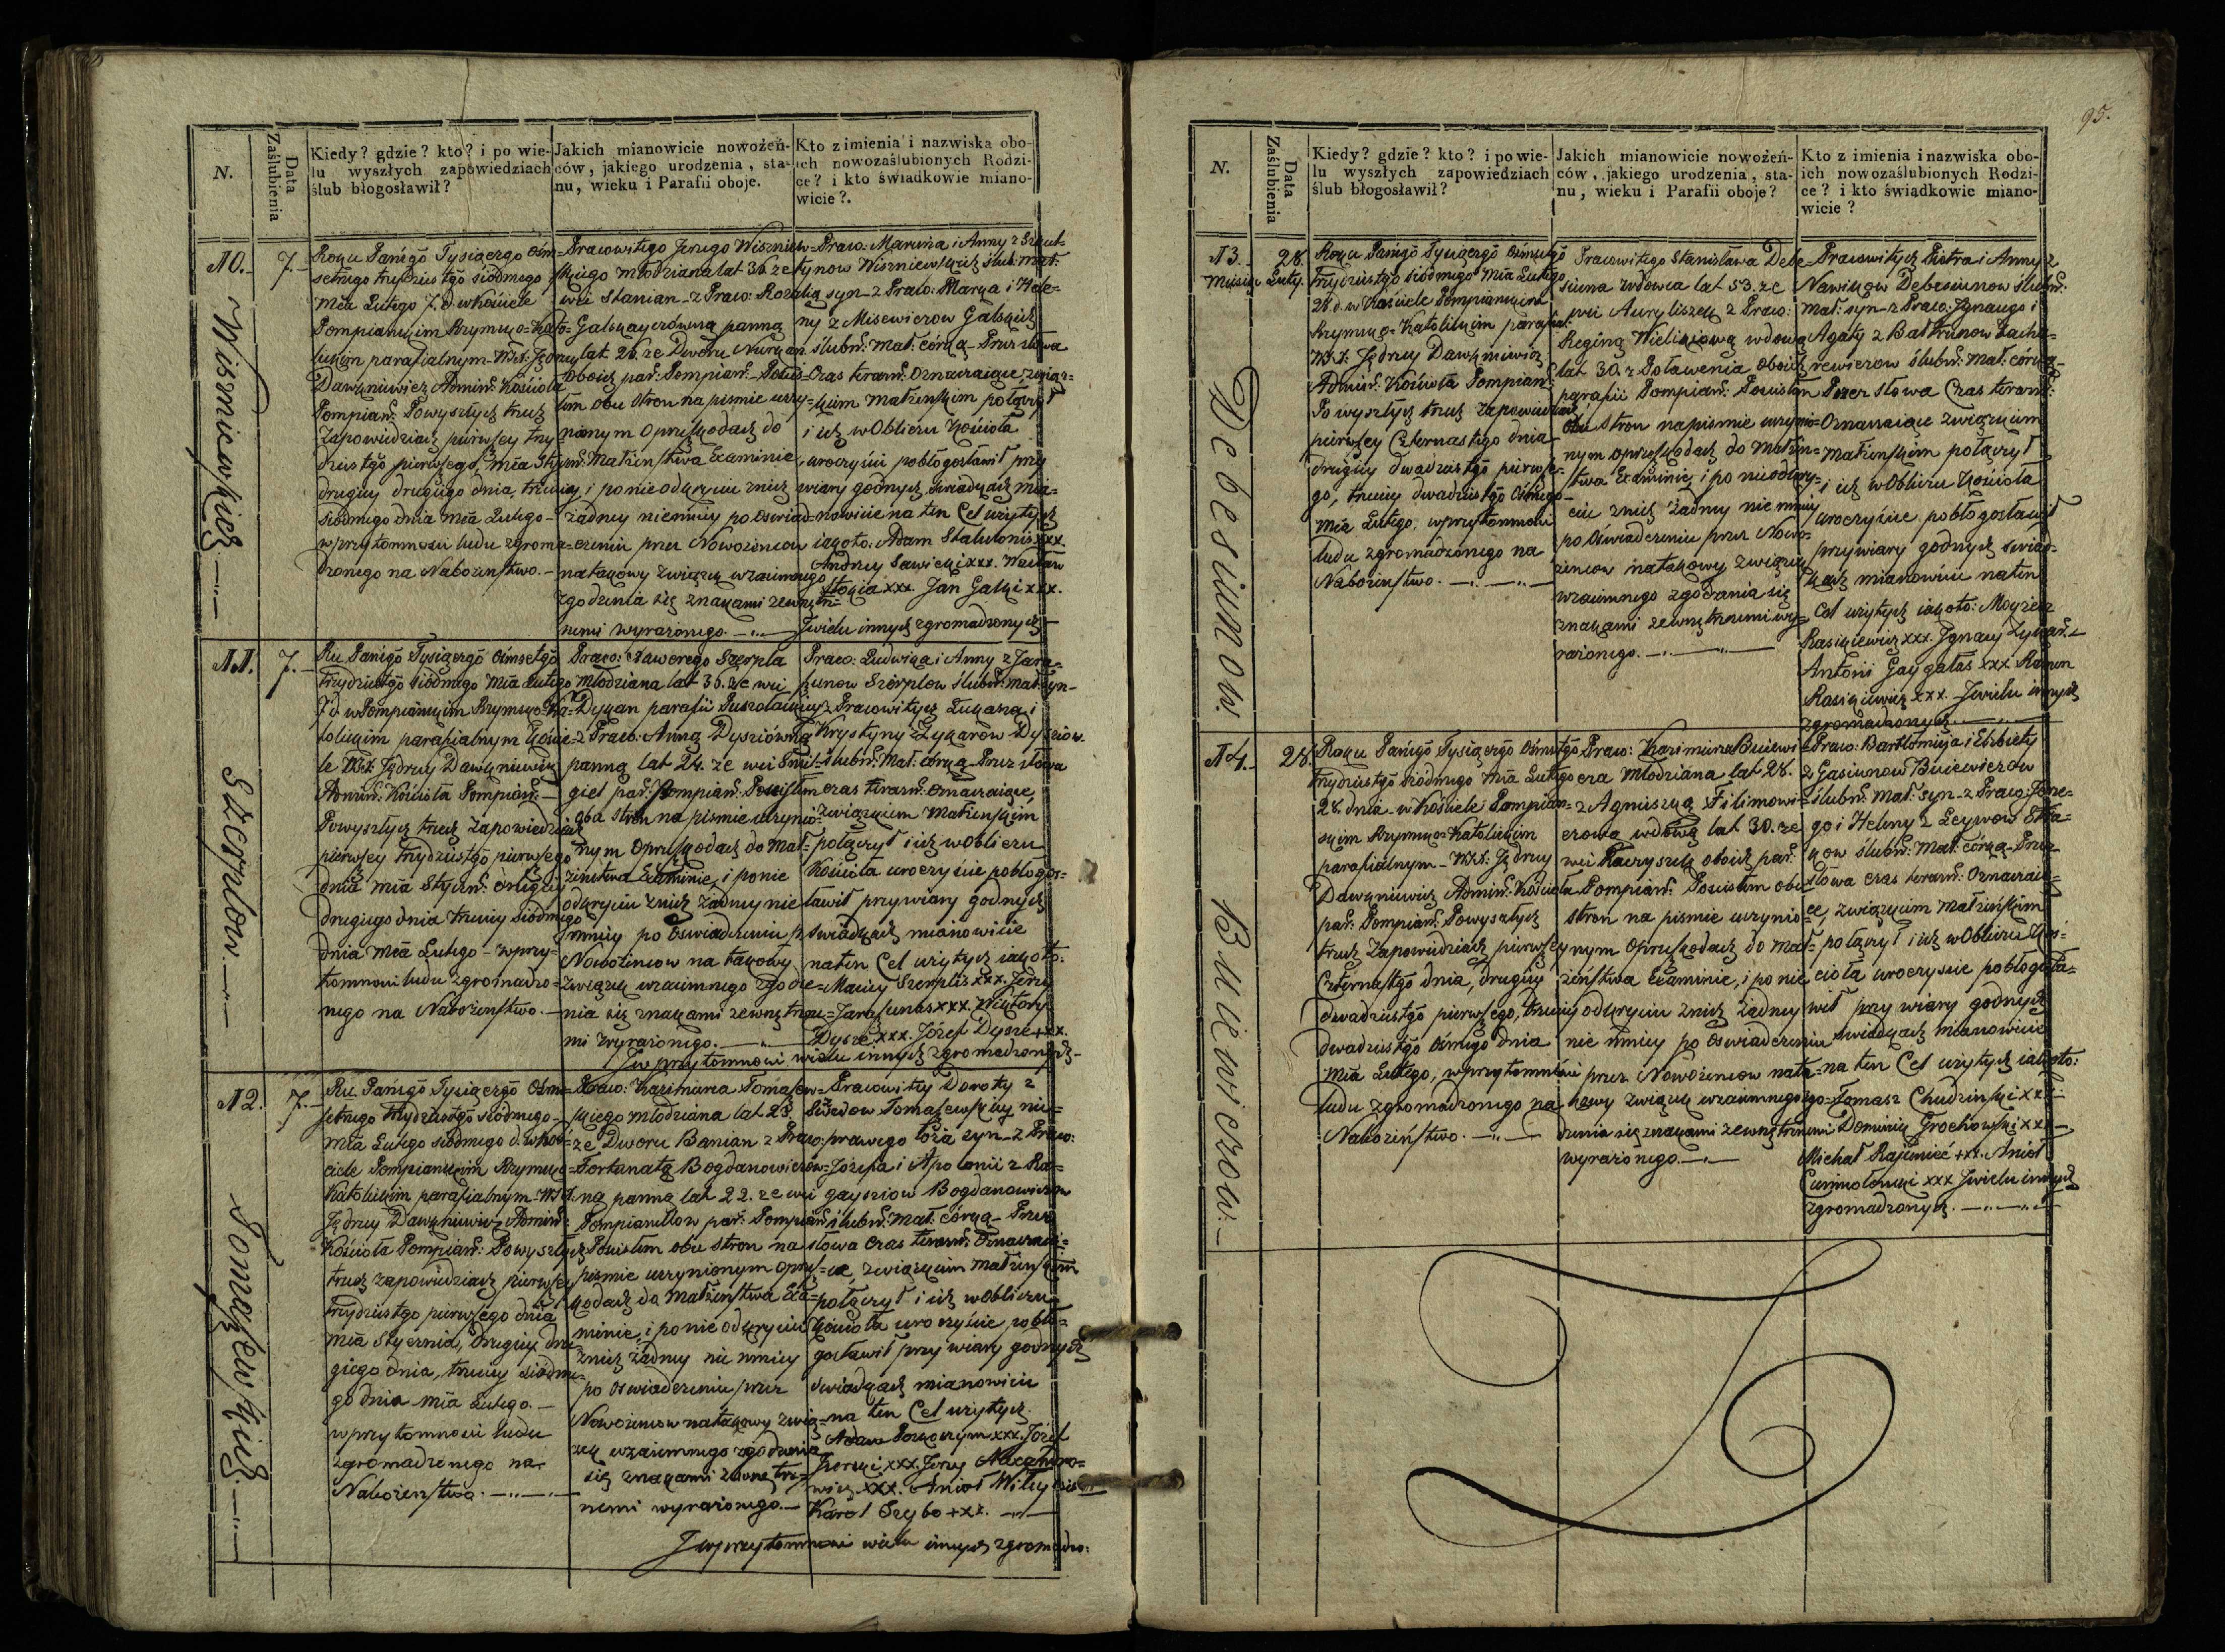 N.
Data
Zaślubienia
Kiedy? gdzie? kto? i po wie-
lu wyszłych zapowiedziach
ślub błogosławił?
Jakich mianowicie nowożeń-
ców, jakiego urodzenia, sta-
nu, wieku i Parafii oboje.
Kto z imienia i nazwiska obo-
ich nowozaślubionych Rodzi-
ce? i kto świadkowie miano-
wicie?.
10.
7.
Wiszniewskich
Roku Pańsgō Tysiączgo Ośm=
setnego trzydziestgō siodmego
mca Lutego 7. d. w Kościele
Pompianskim Rzymsko=Kato=
lickim parafialnym WXt: Jędrzey
Dawkniewicz Admin: Kościoła
Pompiań: Po wyszłych trzech
Zapowiedziach pierwszey trzy
dziestgō pierwszego, mca Stycz
drugiey drugiego dnia, trzeciey
siodmego dnia mca Lutego
w przytomności ludu zgroma=
dzonego na Nabożeństwo.
Pracowitego Jerzego Wiszniew=
skiego młodziana lat 36. ze
wsi Stanian z Praco: Rozalią
Galskayczówną panną
lat 26. ze Dworu
oboich par: Pompiań: Posci=
łem obu stron na pismie uczy=
nionym o przeszkodach do
Małżeństwa Examinie,
i po nie odkryciu znich
żadney niemniey po oświad=
czeniu przez Nowożencow
na takowy związek wzaiemnego
zgodzenia się znakami zewnętrz=
nemi wyrażonego.
Praco: Marcina i Anny z
tynow Wiszniewskich ślub: mał:
syn z Praco: Marka i Hele=
ny z Misewiczow Galskich
ślubń: mał: córką Przez słowa
czas teraźń: oznaczaiące, związ=
kiem małżeńskim połączył
i ich w Obliczu Kościoła
uroczyście pobłogosławił przy
wiary godnych swiadkach mia=
nowicie na ten Cel użytych
iakoto: Adam xxx.
Andrzey Sawicki xxx. Wacław
xxx. Jan Galski xxx.
I wielu innych zgromadzonych
11.
7.
Szerplow.
Ru Pańsgō Tysiączgō ośmsetgō
trzydziestgō siodmego mca Lutego
7 d. w Pompianskim Rzymsko=Ka=
tolickim parafialnym Kościo=
le WXt. Jędrzey Dawkniewicz
Admin: Kościoła Pompiań:
Po wyszłych trzech zapowiedziach
pierwszey trzydziestgō pierwszego
dnia mca Styczń: drugiey
drugiego dnia trzeciey siodmego
dnia mca Lutego w przy=
tomności ludu zgromadzo=
nego na Nabożeństwo.
Praco: Xawerego Szerpla
młodziana lat 36. ze wsi
Dykan parafii
z Praco: Anną Dyszówną
panną lat 24. ze wsi Smil=
giel par: Pompiań: Posciłem
oba stron na pismie uczynio=
nym o przeszkodach do Mał=
żeństwa Examinie, i po nie
odkryciu znich żadney nie
mniey po Oświadczeniu pr
Nowożencow na takowy
związek wzaiemnego zgodze=
nia się znakami zewnętrzne=
mi wyrażonego.
Praco: Ludwika i Anny z Jara=
szunow Szerplow ślubń: Mał: syn
z Pracowitych Łukasza i
Krystyny Zykarow Dyszow
ślubń: Mał: córką Przez słowa
czas teraźń: oznaczaiące,
Związkiem Małżenskim
połączył i ich w obliczu
Kościoła uroczyście pobłogos=
ławił przy wiary godnych
swiadkach mianowicie
na ten Cel użytych iakoto:
Maciey Szerplis xxx. Jerzy
Jaraszunas xxx. Wiktory
Dysze xxx. Józef Dysze +xx.
I w przytomności wielu innych zgromadzonych
12.
7.
Tomaszewskich
Ru. Pańsgō Tysiączgō Ośm=
setnego trzydziestgō siodmego
mca Lutego siodmego d. w Koś=
ciele Pompianskim Rzymsko=
Katolickim parafialnym WXt.
Jędrzey Dawkniewicz Admin=
Kościoła Pompiań: Po wyszłych
trzech zapowiedziach pierwszey
trzydziestgo pierwszego dnia
mca Stycznia, drugiey dru=
giego dnia, trzeciey siodme=
go dnia mca Lutego
w przytomności ludu
zgromadzonego na
Nabożeństwo.
Praco: Kazimierza Tomaszew=
skiego młodziana lat 23.
ze Dworu Banian z Praco:
Fortunatą Bogdanowiczow=
ną panną lat 22. ze wsi
Pompianillow par: Pompiań:
Posciłem obu stron na
pismie uczynionym o prze=
szkodach do Małżeństwa Exa=
minie, i po nie odkryciu
znich żadney nie mniey
po oswiadczeniu przez
Nowożencow na takowy zwią=
zek wzaiemnego zgodzenia
się znakami zewnętrz=
nemi wyrażonego.
Pracowitey Doroty z
Tomaszewskiey nie=
prawego łoża syn z Praco:
Józefa i Apolonii z
Bogdanowiczow
ślubń: Mał: córką Przez
słowa czas teraźń: Oznaczai=
ce, związkiem małżenskim
połączył i ich w obliczu
Kościoła uroczyście pobło=
gosławił przy wiary godnych
swiadkach mianowicie
na ten Cel użytych.
Adam xxx. Józef
xxx. Jerzy Alexandro=
wicz xxx. Anioł
Karol Szybo +xx.
I w przytomności wielu innych zgromadzo:
95.
N.
Data
Zaślubienia
Kiedy? gdzie? kto? i po wie-
lu wyszłych zapowiedziach
ślub błogosławił?
Jakich mianowicie nowożeń-
ców, jakiego urodzenia, sta-
nu, wieku i Parafii oboje?
Kto z imienia i nazwiska obo-
ich nowozaślubionych Rodzi-
ce? i kto świadkowie miano-
wicie?
13.
28.
Miesiąc Luty.
Debesiunow.
Roku Pańsgō Tysiączgō Ośmsetgō
Trzydziestgō siodmego mca Lutego
28. d. w Kościele Pompianskim
Rzymsko=Katolickim parafial:
WXt: Jędrzey Dawkniewicz
Admin: Kościoła Pompiań:
Po wyszłych trzech zapowiedziach
pierwszey Czternastego dnia
drugiey dwudziestgō pierwsze=
go, trzeciey dwadziestgō ósmego
mca Lutego, w przytomności
ludu zgromadzonego na
Nabożeństwo.
Pracowitego Stanisława Debe
siuna wdowca lat 53. ze
wsi Auryliszek z Praco:
Reginą Wielickową wdową
lat 30. z Poławenia oboich
parafii Pompiań: Posciłem
obu stron na pismie uczynio=
nym o przeszkodach do Małżeń=
stwa Examinie, i po nieodkry=
ciu znich żadney nie mniey
po Oświadczeniu przez Nowo=
żencow na takowy związek
wzaiemnego zgodzenia się
znakami zewnętrznemi wy=
rażonego.
Pracowitych Piotra i Anny z
Nawikow Debesiunow ślubń:
mał: syn z Praco: Ignacego i
Agaty z Baltrunow
ślubń: mał: córką
Przez słowa Czas teraźń:
Oznaczaiące związkiem
małżeńskim połączył
i ich w Obliczu Kościoła
uroczyście pobłogosławił
przy wiary godnych swiad=
kach mianowicie na ten
Cel użytych iakoto: Moyżesz
Rasikiewicz xxx. Ignacy
Antoni Gaygałas xxx.
Rasikiewicz xxx. I wielu innych
zgromadzonych.
14.
28.
Buiewiczow.
Roku Pańsgō Tysiączgō Ośmsetgō
trzydziestgō siodmego mca Lutego
28. dnia w Kościele Pompian=
skim Rzymsko=Katolickim
parafialnym WXt: Jędrzey
Dawkniewicz Admin: Kościoła
par: Pompiań: Po wyszłych
trzech Zapowiedziach pierwszey
Czternastgō dnia, drugiey
dwadziestgō pierwszego, trzeciey
dwadziestgō ósmego dnia
mca Lutego, w przytomności
ludu zgromadzonego na
Nabożeństwo.
Praco: Kazimierza Buiewi=
cza Młodziana lat 28.
z Agnieszką Filimowi=
czową wdową lat 30. ze
wsi Kaczyszek oboich par:
Pompiań: Posciłem obu
stron na pismie uczynio=
nym o przeszkodach do Mał=
żeństwa Examinie, i po nie
odkryciu znich żadney
nie mniey po Oswiadczeniu
przez Nowożencow na ta=
kowy związek wzaiemnego zgo=
dzenia się znakami zewnętrznemi
wyrażonego.
Praco: Bartłomieja i Elżbiety
z Gasiunow Buiewiczow
ślubń: Mał: syn z Praco: Jerze=
go i Heleny z
ślubń: Mał: córką Przez
słowa czas teraźń: Oznaczaią=
ce, związkiem Małżeńskim
połączył i ich w Obliczu Koś=
cioła uroczyscie pobłogosła=
wił przy wiary godnych
swiadkach mianowicie
na ten Cel użytych iakoto:
Tomasz Chudzinski xxx
Dominik Grochowski xxx
Michał +xx. Anioł
xxx I wielu innych
zgromadzonych.